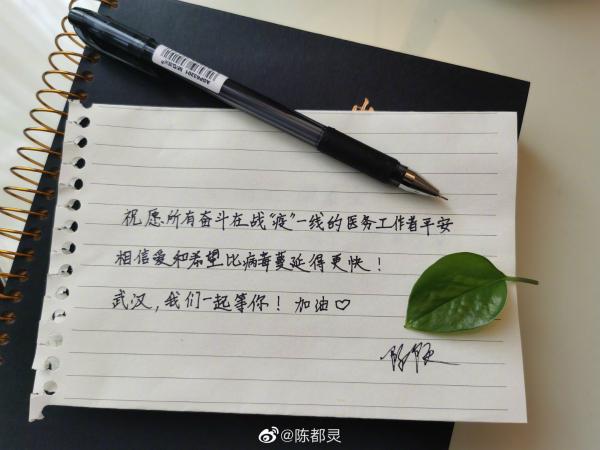 祝愿所有奋斗在战“疫”一线的医务工作者平安
相信爱和希望比病毒蔓延得更快！
武汉，我们一起等你！加油♡
@陈都灵